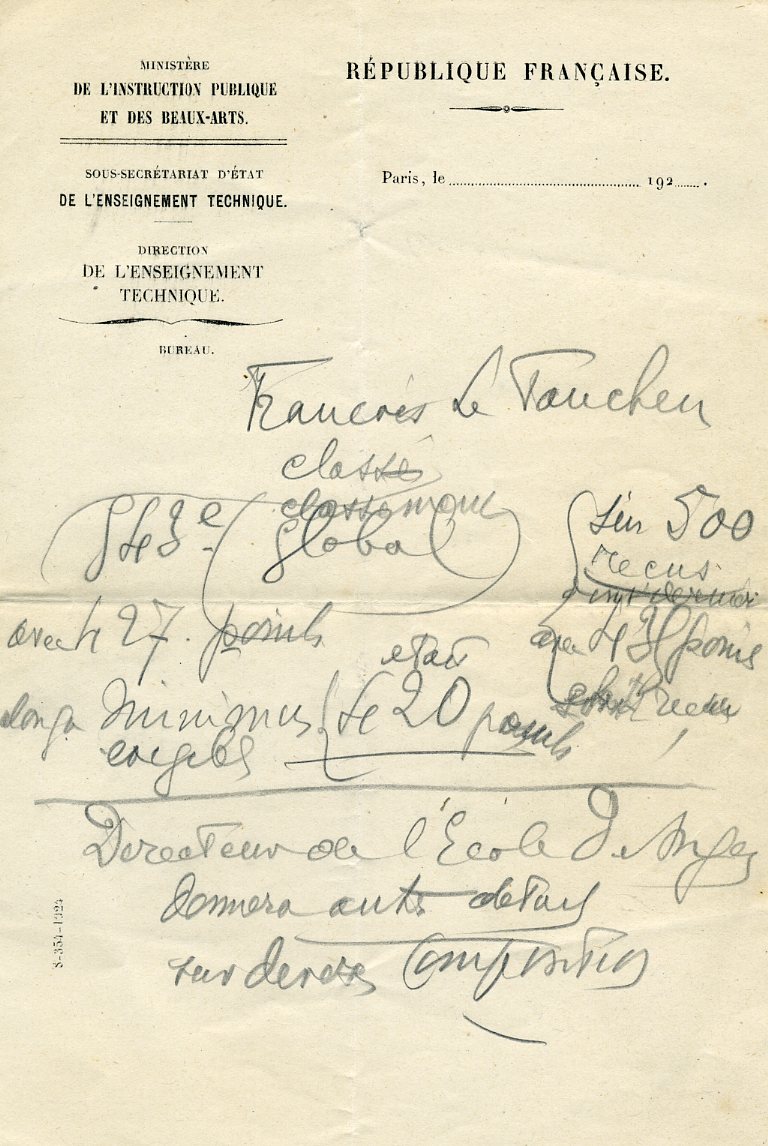 MINISTÈRE
DE L'INSTRUCTION PUBLIQUE
ET DES BEAUX-ARTS.
SOUS-SECRÉTARIAT D'ÉTAT
DE L'ENSEIGNEMENT TECHNIQUE.
DIRECTION
DE L'ENSEIGNEMENT
TECHNIQUE.
BUREAU.
RÉPUBLIQUE FRANÇAISE.
Paris, le 192 .
François Le
classé
classement
543e global
sur 500
reçus
avec 427 points
avec
était
minimum
exigible
de 20 points
Directeur de l'École d'Angers
donnera autres détails
sur diverses compositions
8-354-1924